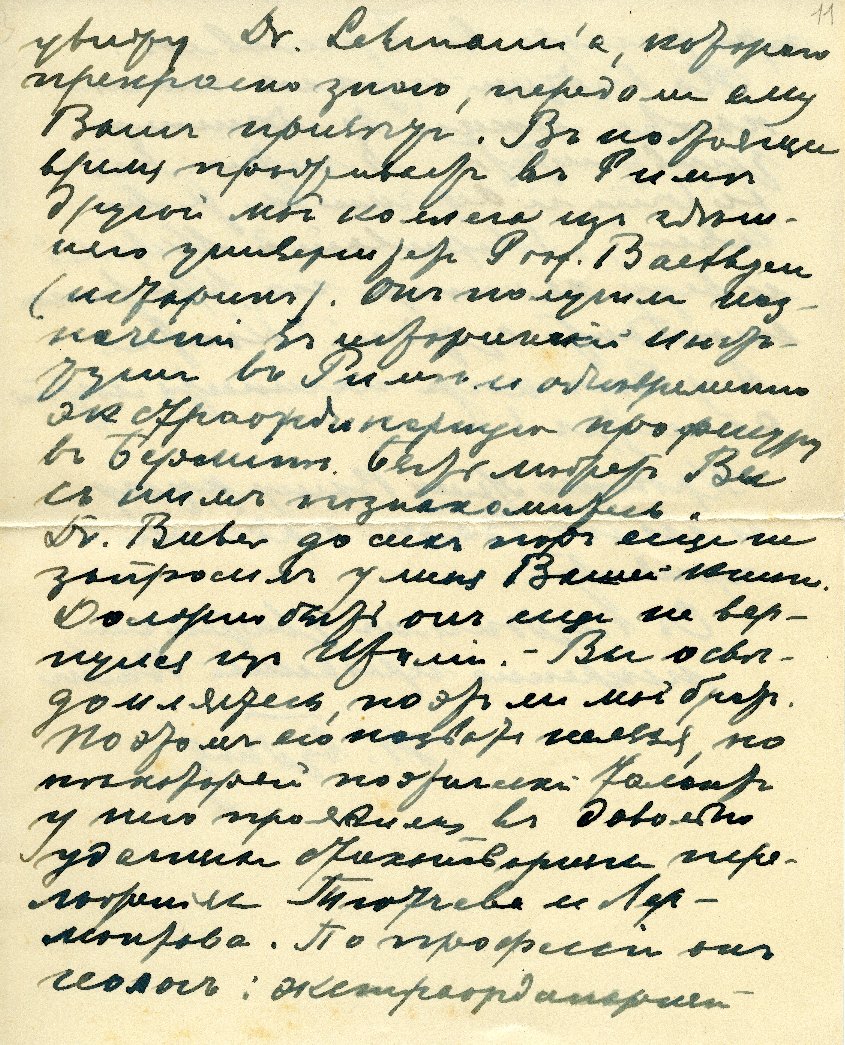 11
увижу Dr. Lehmann'а, котораго
прекрасно знаю, передам ему
Ваш привет. Въ настоящее
время проживает въ Риме
другой мой коллега из здеш-
няго университета Prof. Baethgen
(историкъ). Онъ получил наз-
начение въ исторический инсти-
тутъ въ Риме и одновременно
экстраординарную професуру
въ Берлине. Быть может Вы
съ нимъ познакомитесь.
Dr. Bieber до сихъ поръ еще не
запросилъ у меня Вашей книги.
Должно быть онъ еще не вер-
нулся из Италии. – Вы осве-
домляетесь, поэт ли мой брат.
Поэтомъ его назвать нельзя, но
некоторый поэтический талант
у него проявился въ довольно
удачных стихотворных пере-
ложениях Тютчева и Лер-
монтова. По профессии онъ
геологъ: экстраординарный